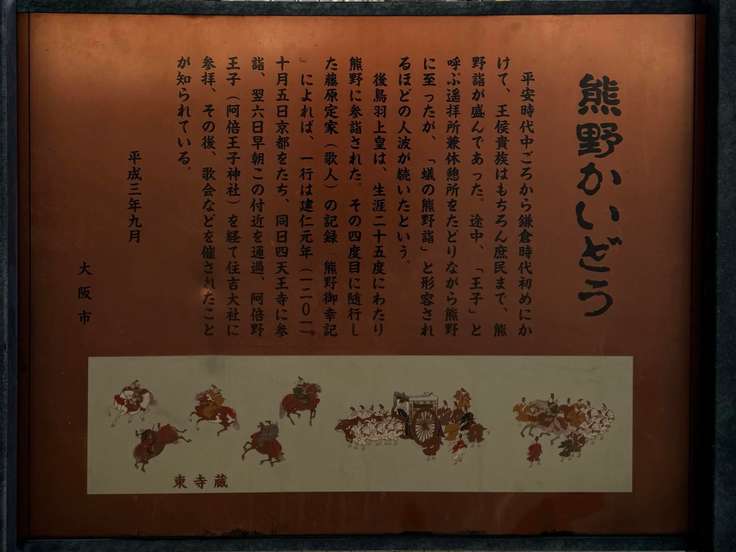 熊野かいどう
平安時代中ごろから鎌倉時代初めにか
けて、王侯貴族はもちろん庶民まで、熊
野詣が盛んであった。途中、「王子」と
呼ぶ遥拝所兼休憩所をたどりながら熊野
に至ったが、「蟻の熊野詣」と形容され
るほどの人波が続いたという。
後鳥羽上皇は、生涯二十五度にわたり
熊野に参詣された。その四度目に随行し
た藤原定家(歌人)の記録「熊野御幸記
」によれば、一行は建仁元年(一二〇一)
十月五日京都をたち、同日四天王寺に参
詣、翌六日早朝この付近を通過、阿倍野
王子(阿倍王子神社)を経て住吉大社に
参拝、その後、歌会などを催されたこと
が知られている。
平成三年九月
大阪市
東寺蔵